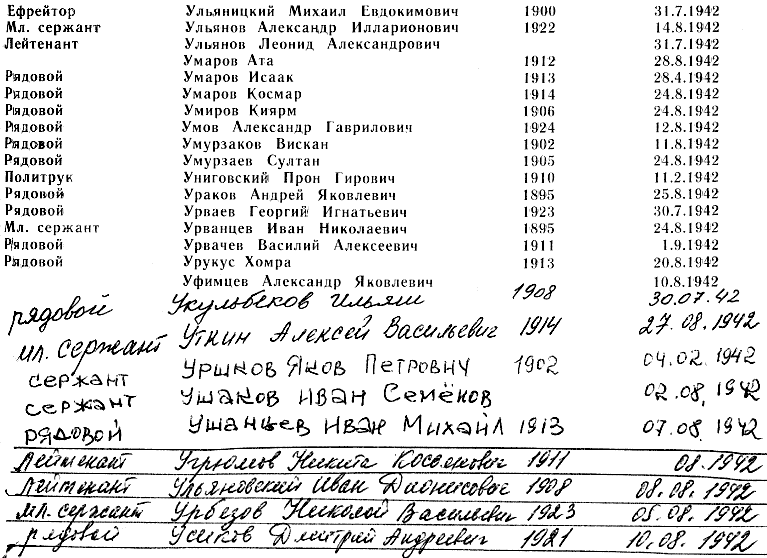 Ефрейтор Ульяницкий Михаил Евдокимович 1900 31.7.1942
Мл. сержант Ульянов Александр Илларионович 1922 14.8.1942
Лейтенант Ульянов Леонид Александрович 31.7.1942
Умаров Ата 1912 28.8.1942
Рядовой Умаров Исаак 1913 28.4.1942
Рядовой Умаров Космар 1914 24.8.1942
Рядовой Умиров Киярм 1906 24.8.1942
Рядовой Умов Александр Гаврилович 1924 12.8.1942
Рядовой Умурзаков Вискан 1902 11.8.1942
Рядовой Умурзаев Султан 1905 24.8.1942
Политрук Униговский Прон Гирович 1910 11.2.1942
Рядовой Ураков Андрей Яковлевич 1895 25.8.1942
Рядовой Урваев Георгий Игнатьевич 1923 30.7.1942
Мл. сержант Урванцев Иван Николаевич 1895 24.8.1942
Рядовой Урвачев Василий Алексеевич 1911 1.9.1942
Рядовой Урукус Хомра 1913 20.8.1942
Уфимцев Александр Яковлевич 10.8.1942
рядовой Укульбеков Ильяш 1908 30.07.42
мл. сержант Уткин Алексей Васильевич 1914 27.08.1942
сержант Уршков Яков Петрович 1902 04.02.1942
сержант Ушаков Иван Семёнов 02.08.1942
рядовой Ушанцев Иван Михайл 1913 07.08.1942
Лейтенант Угрюмов Никита 1911 08.1942
Лейтенант Ульяновский Иван 1908 08.08.1942
мл. сержант Урбезов Николой Васильевич 1923 05.08.1942
рядовой Усиков Дмитрий Андреевич 1921 10.08.1942